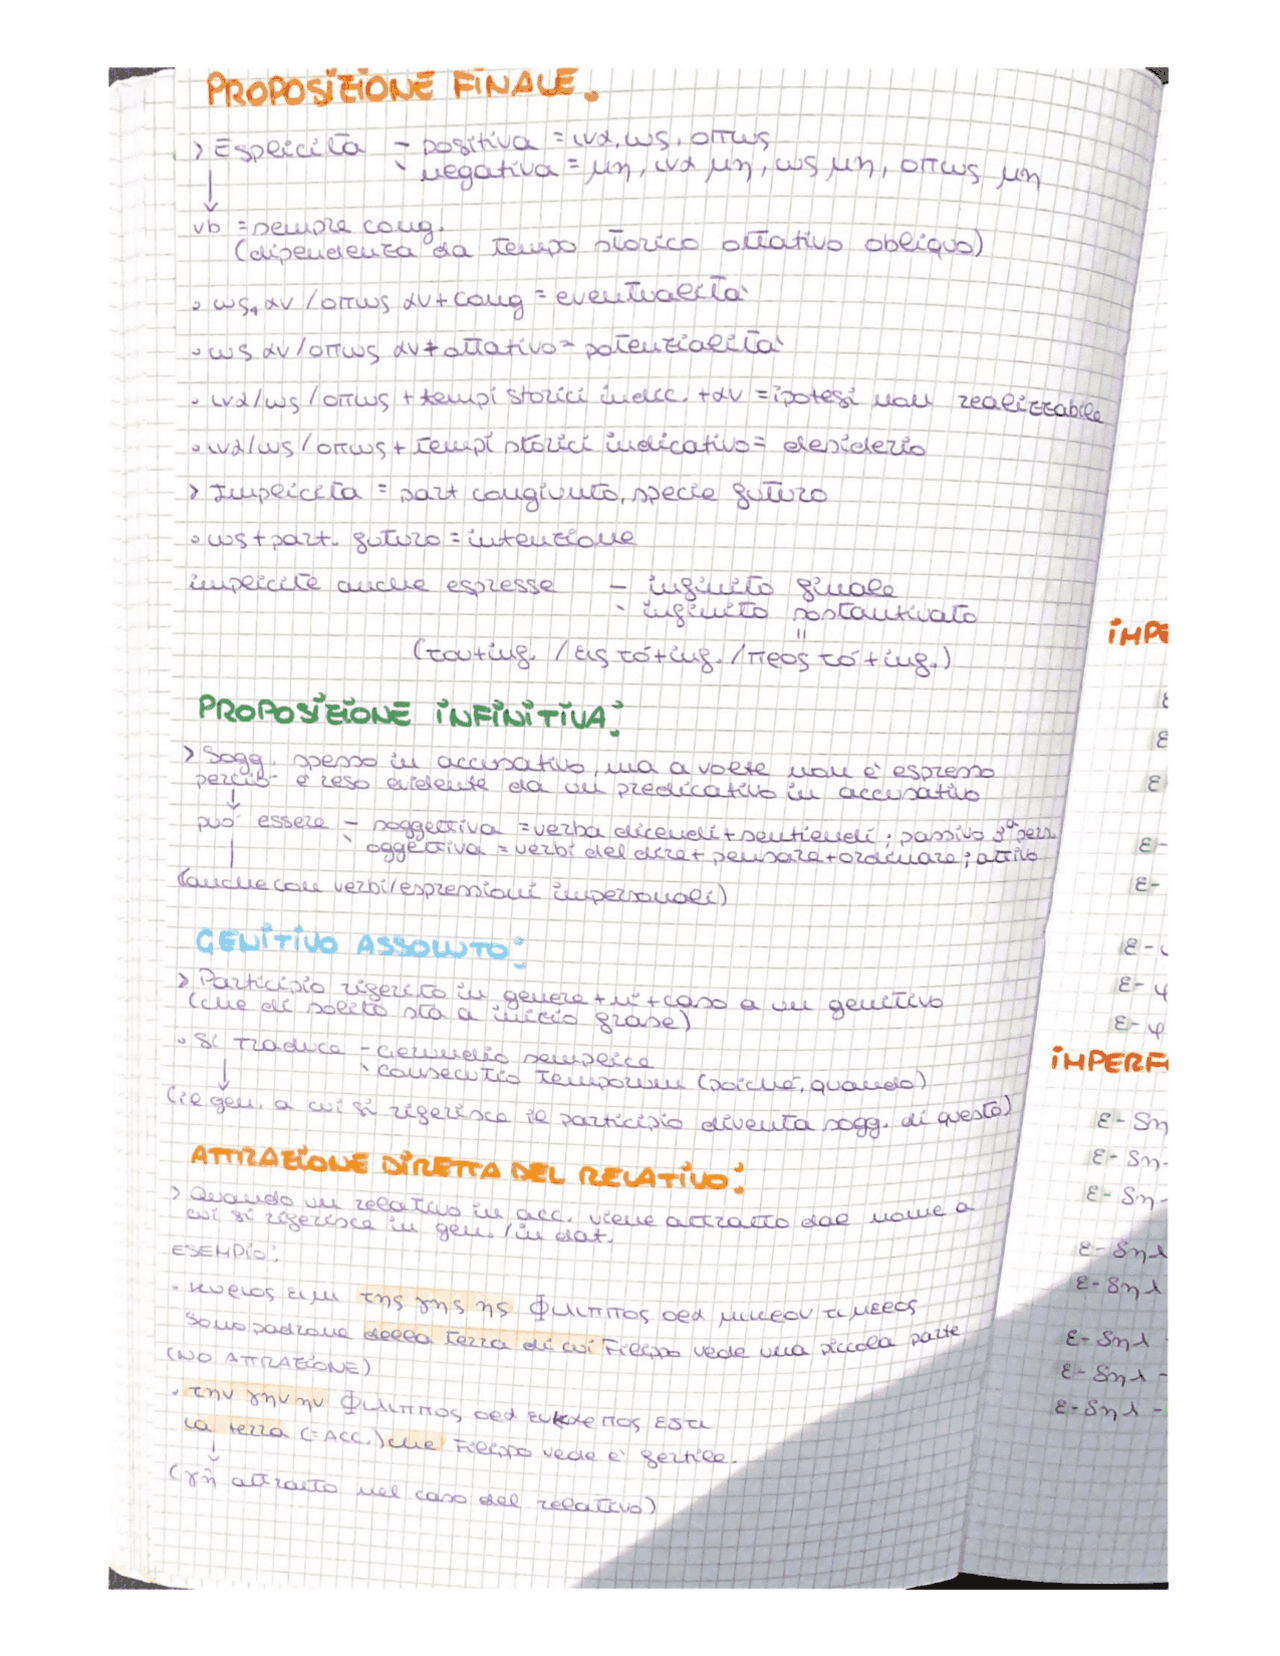 PROPOSIZIONE FINALE.
> Esplicita - positiva = ινα, ως, οπως
- negativa = μη, ινα μη, ως μη, οπως μη
↓
vb = sempre cong.
(dipendenza da tempo storico ottativo obliquo)
• ως αν/οπως αν + cong = eventualità
• ως αν/οπως αν + ottativo = potenzialità
• ινα/ως/οπως + tempi storici indic. + αν = ipotesi non realizzabile
• ινα/ως/οπως + tempi storici indicativo = desiderio
> Implicita = part congiunto, specie futuro
• ως + part. futuro = intenzione
implicite anche espresse - infinito finale
- infinito sostantivato
=
(του + inf. / εις τό + inf. / προς τό + inf.)
PROPOSIZIONE INFINITIVA:
> Sogg. spesso in accusativo, ma a volte non è espresso
perciò è reso evidente da un predicativo in accusativo
↓
può essere - soggettiva = verba dicendi + sentiendi; passivo 3ª pers.
- oggettiva = verbi del dire + pensare + ordinare; attivo
(anche con verbi/espressioni impersonali)
GENITIVO ASSOLUTO:
> Participio riferito in genere + n° + caso a un genitivo
(che di solito sta a inizio frase)
• Si traduce - Gerundio semplice
- consecutio temporum (poiché, quando)
↓
(il gen. a cui si riferisce il participio diventa sogg. di questo)
ATTRAZIONE DIRETTA DEL RELATIVO:
> Quando un relativo in acc. viene attratto dal nome a
cui si riferisce in gen. / in dat.
ESEMPIO:
• κυριος ειμι της γης ης Φιλιππος ορα μικρον τι μερος
Sono padrone della terra di cui Filippo vede una piccola parte
(NO ATTRAZIONE)
• την γην ην Φιλιππος ορα εστι
La terra (= ACC.) che Filippo vede è fertile.
↓
(γῆ attratto nel caso del relativo)
IMPE
ε
ε
ε
ε-
ε-
ε-ι
ε-φ
ε-φ
IMPERF
ε-δη
ε-δη-
ε-δη-
ε-δηλ
ε-δηλ
ε-δηλ
ε-δηλ-
ε-δηλ-